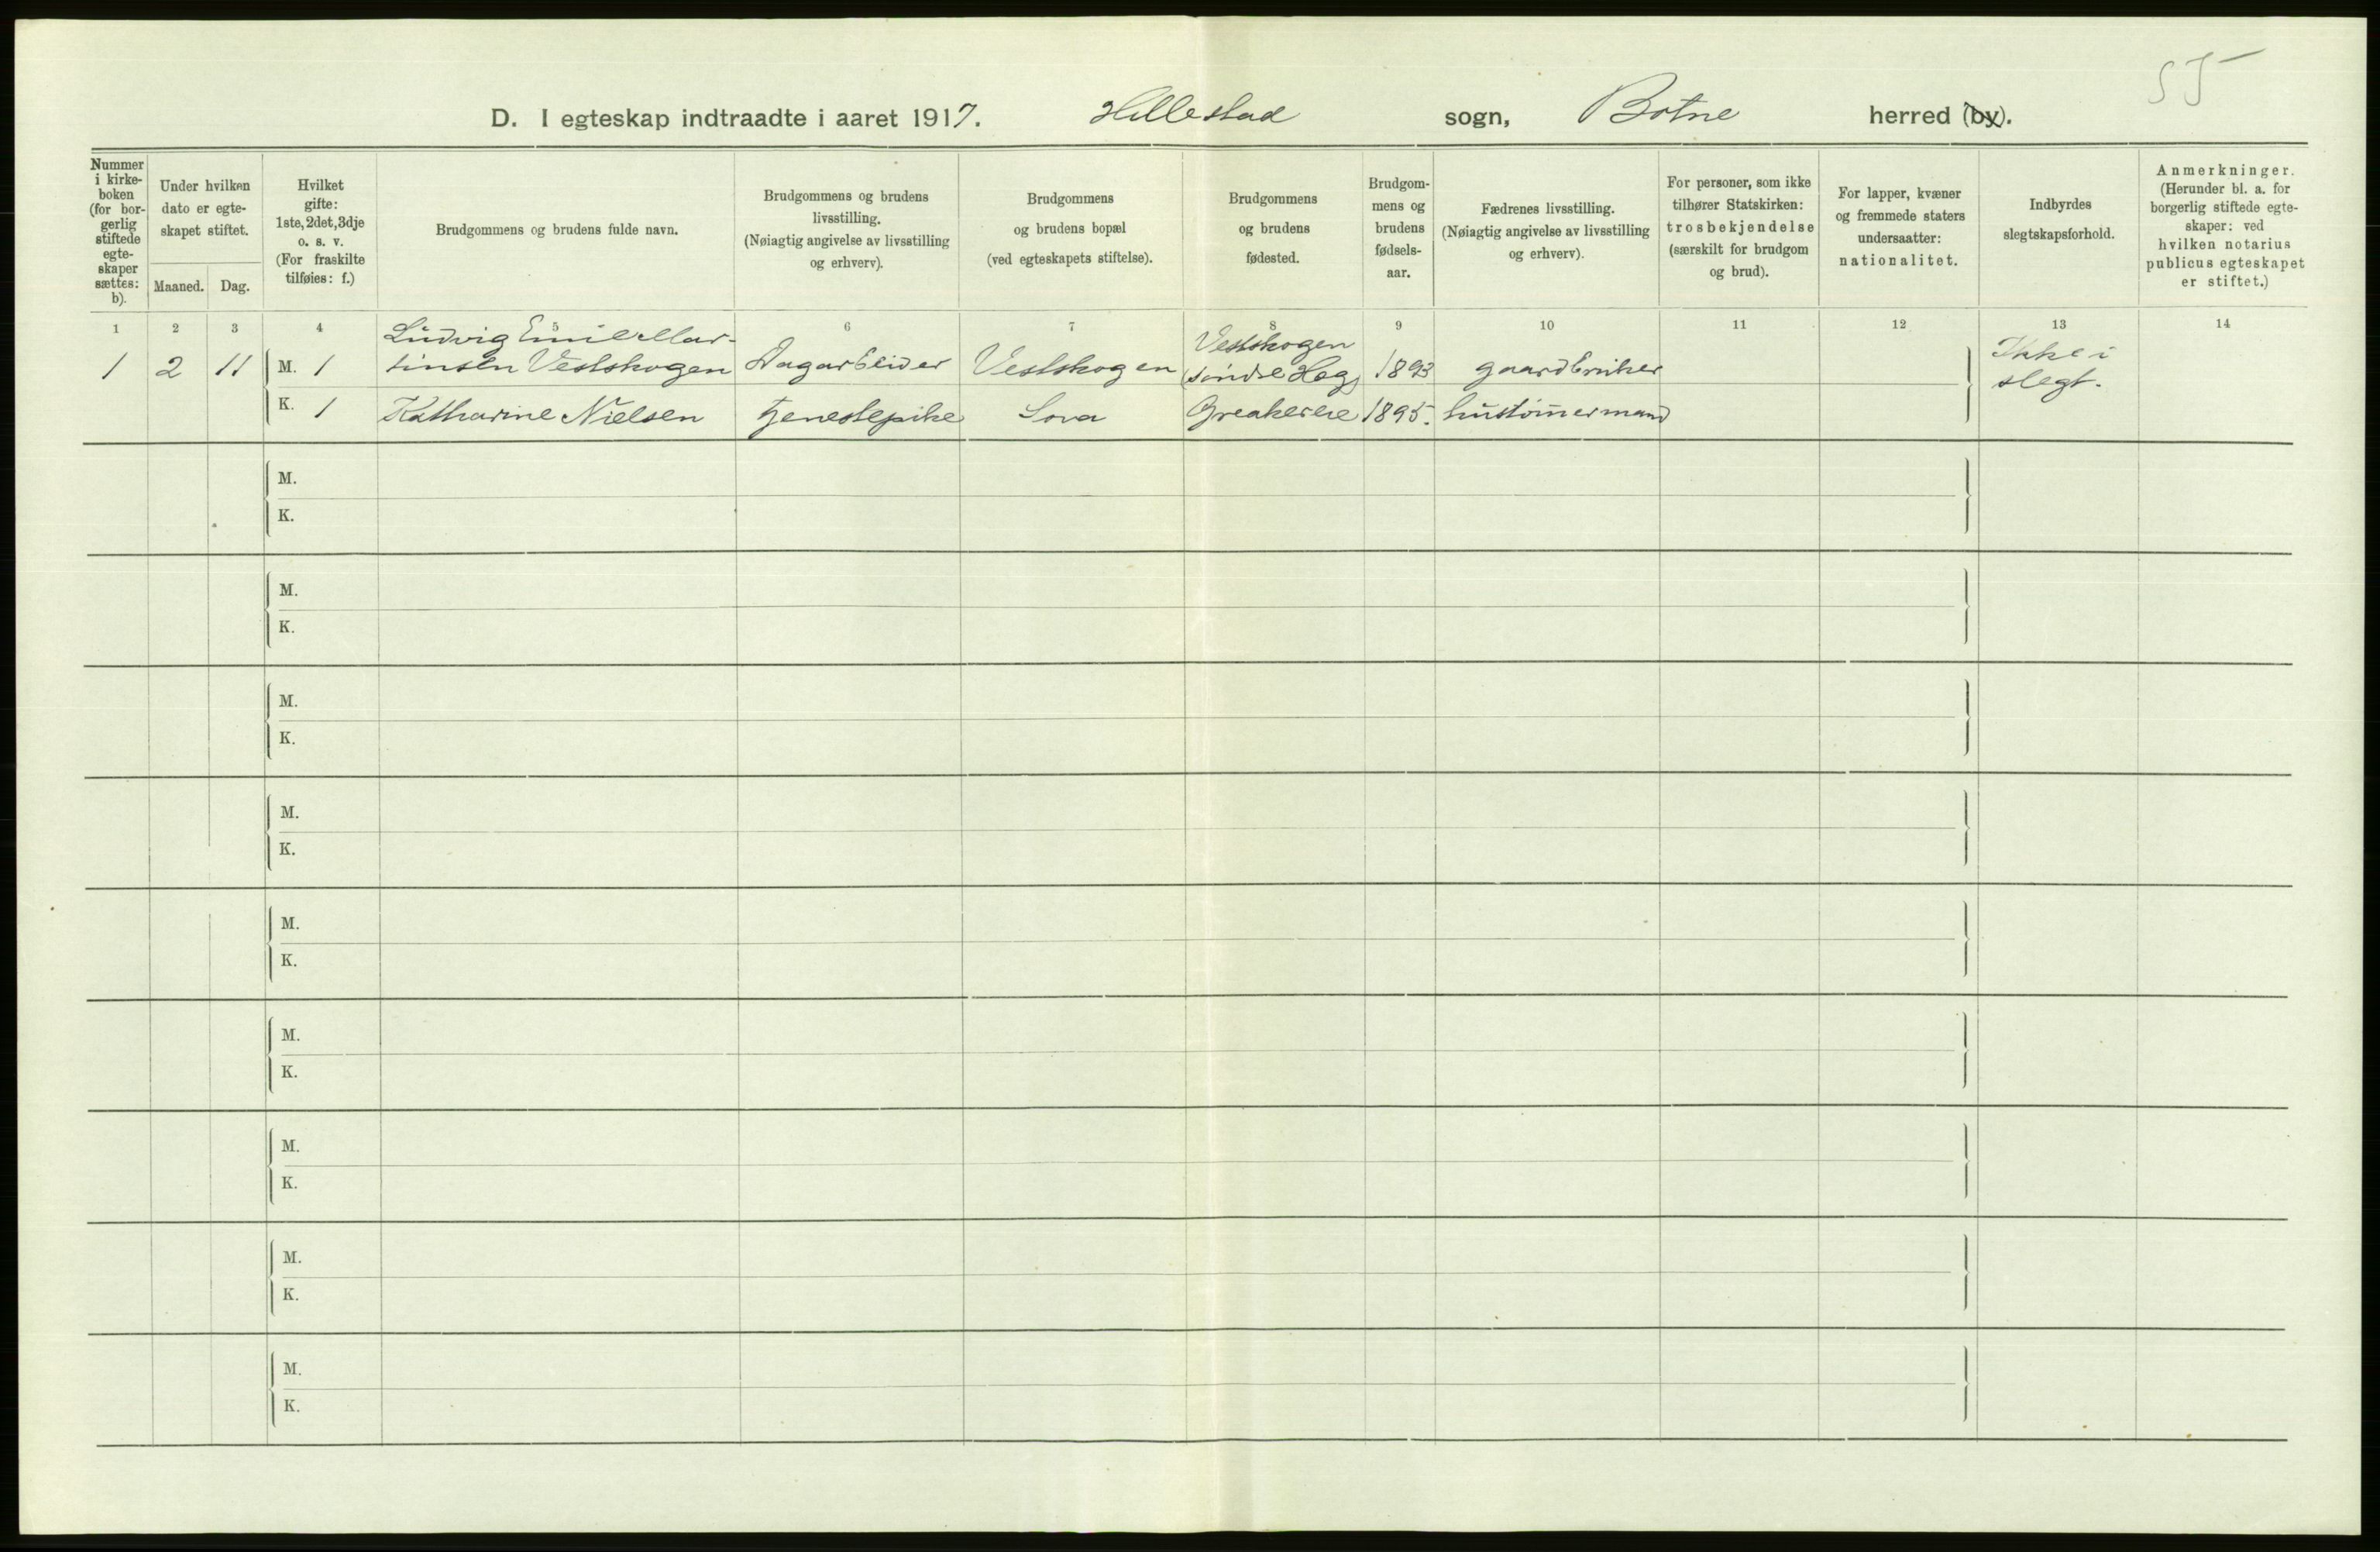 55
D. I egteskap indtraadte i aaret 1917. Hillestad sogn, Botne herred (by).
Nummer i kirke-boken (for bor-gerlig stiftede egte-skaper sættes: b).
Under hvilken dato er egte-skapet stiftet.
Maaned.
Dag.
Hvilket gifte: 1ste, 2det, 3dje o. s. v. (For fraskilte tilføies: f.)
Brudgommens og brudens fulde navn.
Brudgommens og brudens livsstilling. (Nøiagtig angivelse av livsstilling og erhverv).
Brudgommens og brudens bopæl (ved egteskapets stiftelse).
Brudgommens og brudens fødested.
Brudgom-mens og brudens fødsels-aar.
Fædrenes livsstilling. (Nøiagtig angivelse av livsstilling og erhverv).
For personer, som ikke tilhører Statskirken: trosbekjendelse (særskilt for brudgom og brud).
For lapper, kvæner og fremmede staters undersaatter: nationalitet.
Indbyrdes slegtskapsforhold.
Anmerkninger. (Herunder bl. a. for borgerlig stiftede egte-skaper: ved hvilken notarius publicus egteskapet er stiftet.)
1 2 3 4 5 6 7 8 9 10 11 12 13 14
Ludvig Emil Mar-
Vestskogen
Ikke i
1 2 11 M. 1 tinsen Vestskogen Dagarbeider Vestskogen 1893 gaardbruker
slegt.
K. 1 Katharine Nielsen tjenestepike Sora Greakerene 1895. hustømermand
M.
K.
M.
K.
M.
K.
M.
K.
M.
K.
M.
K.
M.
K.
M.
K.
M.
K.